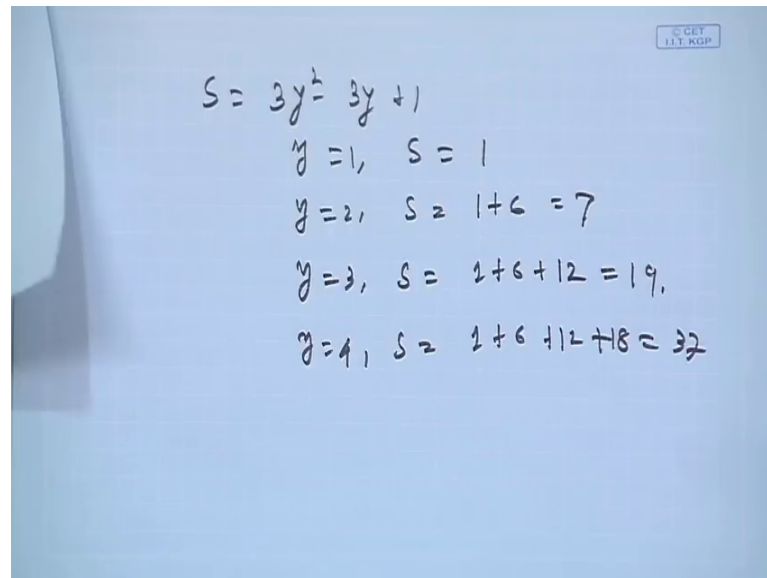 © CET
I.I.T. KGP
S = 3y² - 3y + 1
y = 1, S = 1
y = 2, S = 1 + 6 = 7
y = 3, S = 1 + 6 + 12 = 19.
y = 4, S = 1 + 6 + 12 + 18 = 37